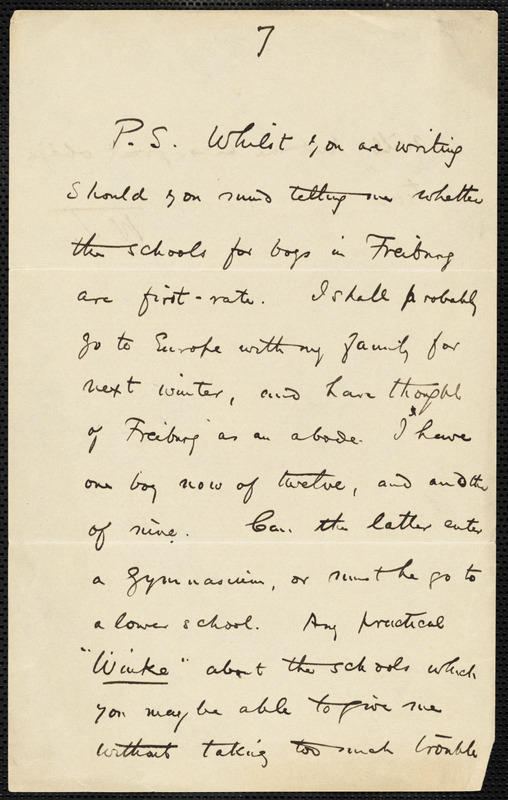 7
P.S. Whilst you are writing
should you mind telling me whether
the schools for boys in Freiburg
are first-rate. I shall probably
go to Europe with my family for
next winter, and have thought
of Freiburg as an abode. I have
one boy now of twelve, and another
of nine. Can the latter enter
a Gymnasium, or must he go to
a lower school. Any practical
"Winke" about the schools which
you may be able to give me
without taking too much trouble